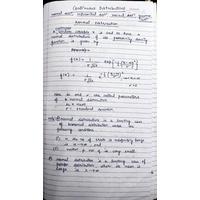 Continuous Distributions
normal dist^n, exponential dist^n, normal dist^n, gamma
Normal Distribution
A random variable x is said to have a
normal distribution if its probability density
function is given by
f(x) = 1/σ√2π exp[-1/2(x-μ/σ)²]
f(x) = 1/σ√2π e^-1/2(x-μ/σ)²
σ > 0
Here μ and σ are called parameters
of normal distribution
σ = standard deviation
Normal distribution is a limiting case of
binomial distribution under the
following conditions
n, the no. of trials is indefinitely large
is n→∞ and
neither p nor q is very small
Normal distribution is a limiting case of
poisson distribution when its mean is
large